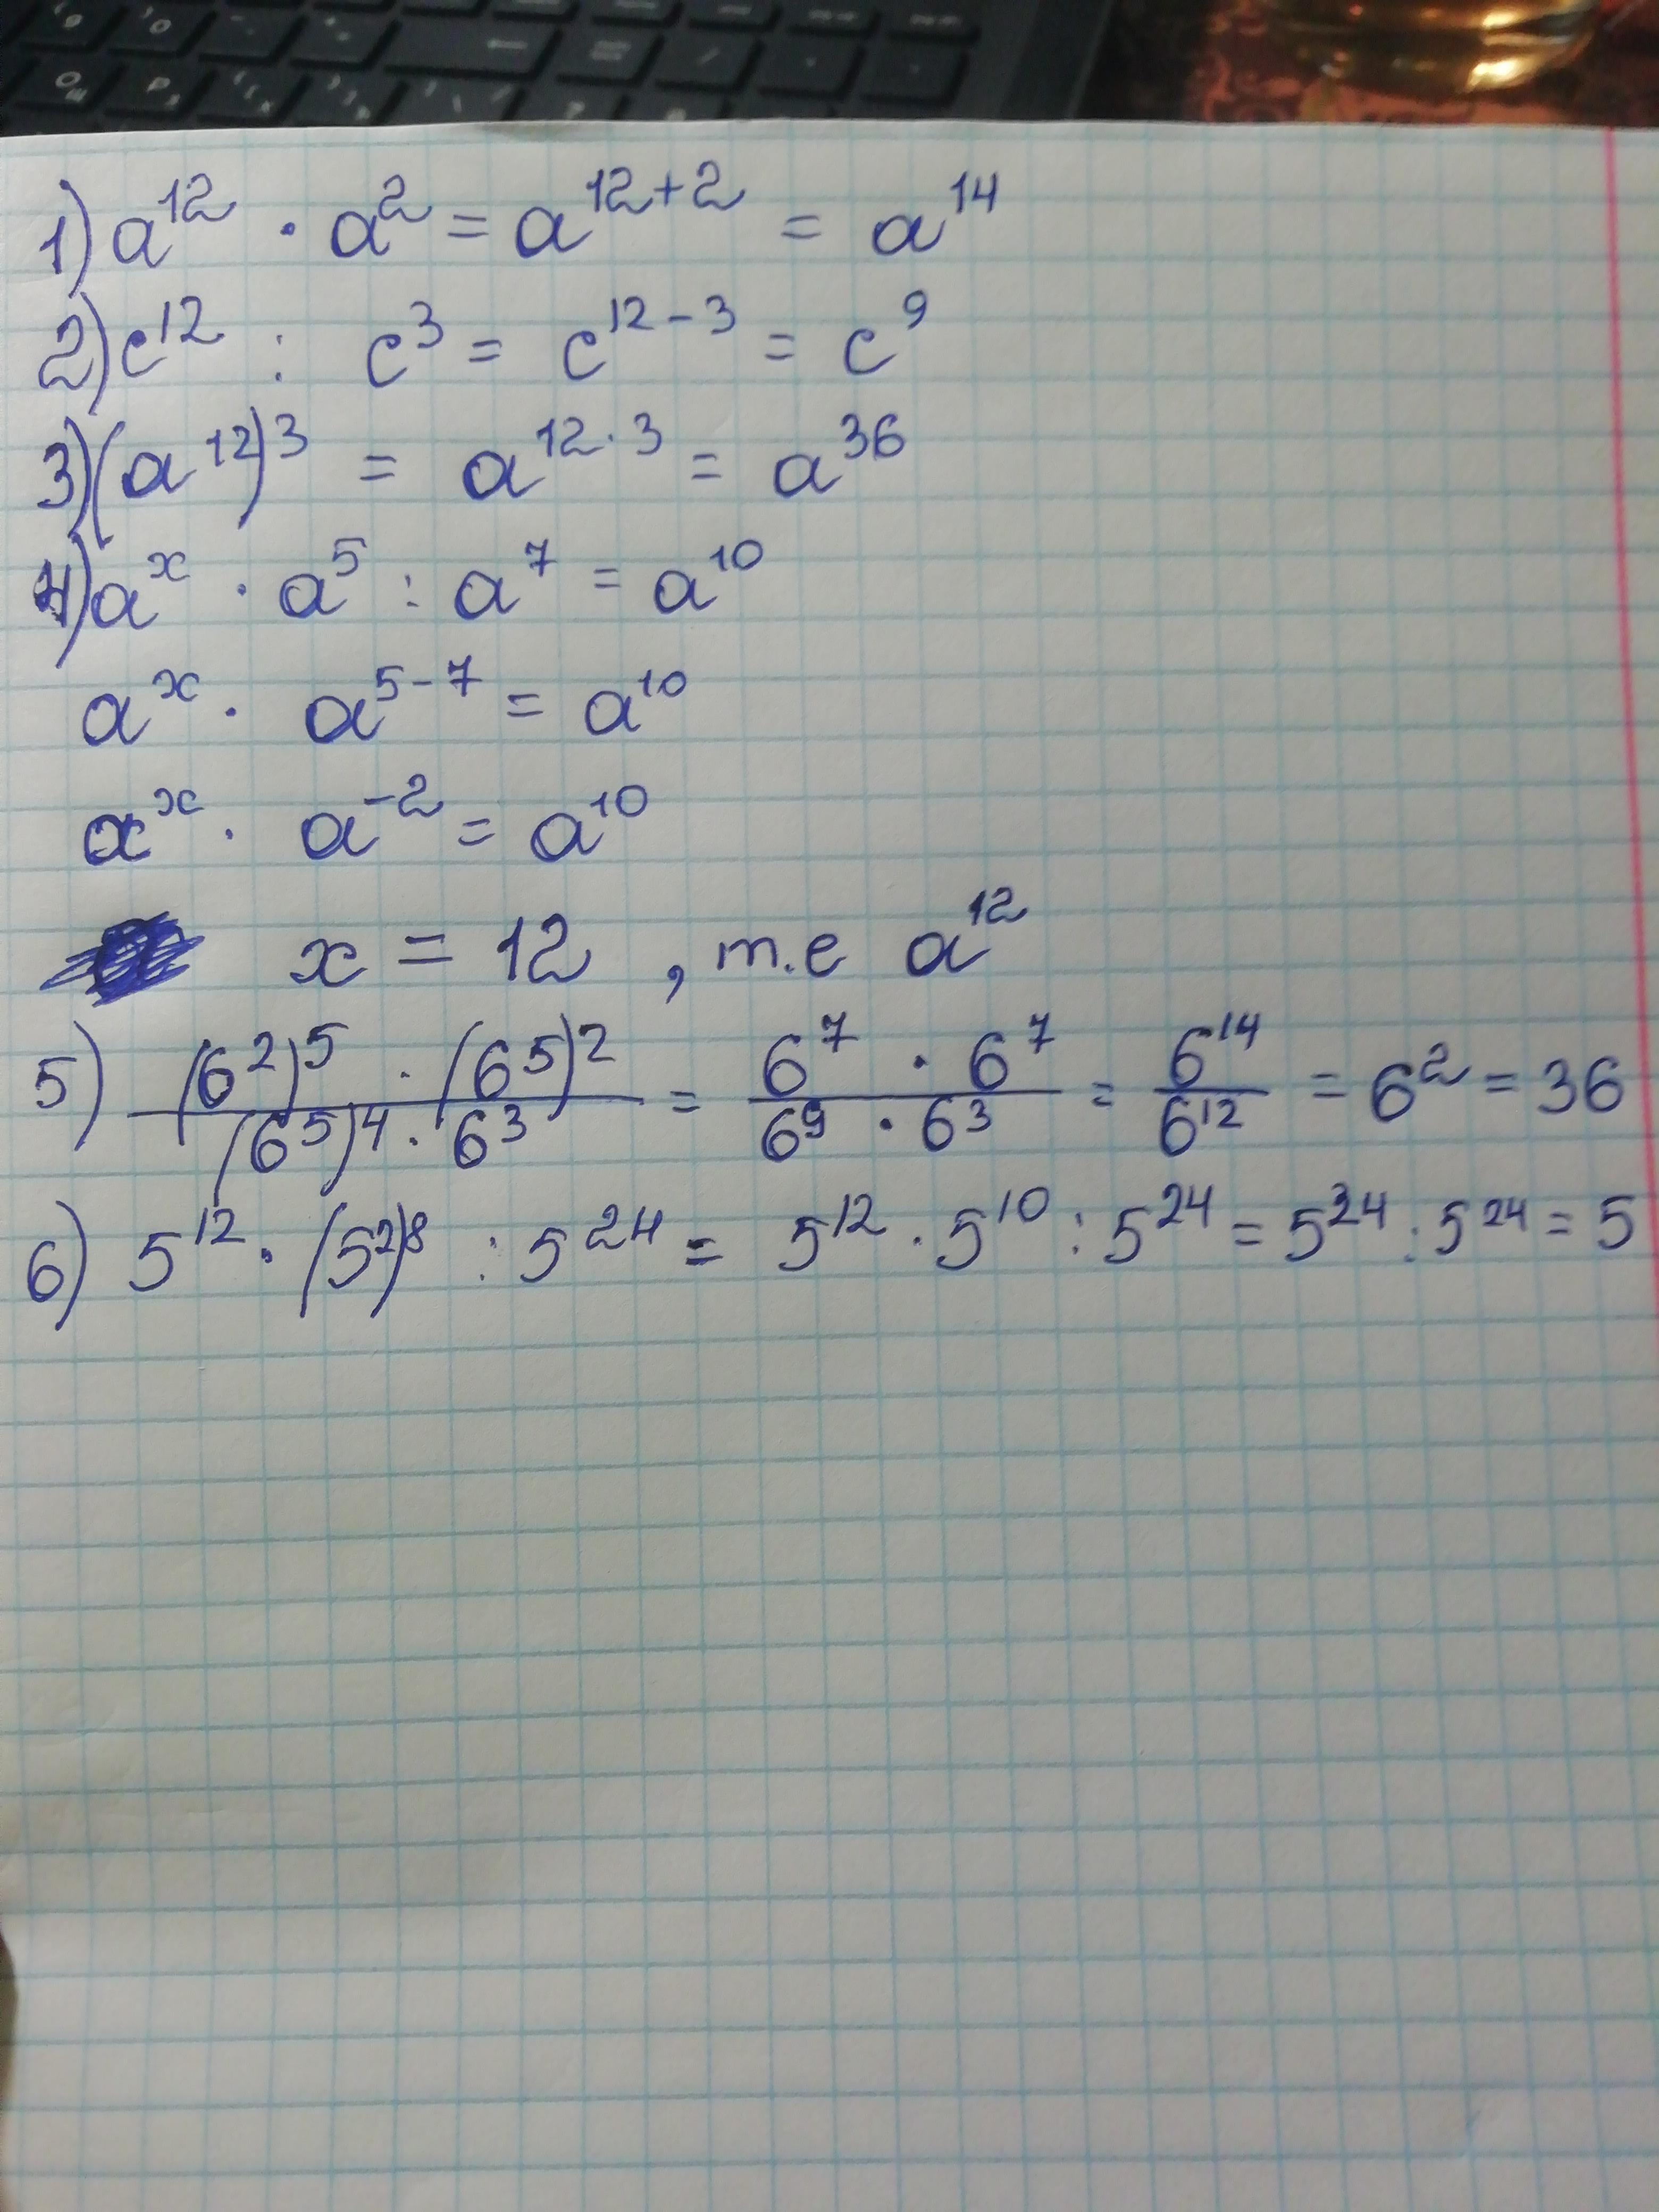 1) a¹² · a² = a¹²⁺² = a¹⁴
2) c¹² : c³ = c¹²⁻³ = c⁹
3) (a¹²)³ = a¹²˙³ = a³⁶
4) aˣ · a⁵ : a⁷ = a¹⁰
aˣ · a⁵⁻⁷ = a¹⁰
aˣ · a⁻² = a¹⁰
x = 12 , т.е a¹²
5) (6²)⁵ · (6⁵)² / (6⁵)⁴ · 6³ = 6⁷ · 6⁷ / 6⁹ · 6³ = 6¹⁴ / 6¹² = 6² = 36
6) 5¹² · (5²)⁸ : 5²⁴ = 5¹² · 5¹⁰ : 5²⁴ = 5²⁴ : 5²⁴ = 5